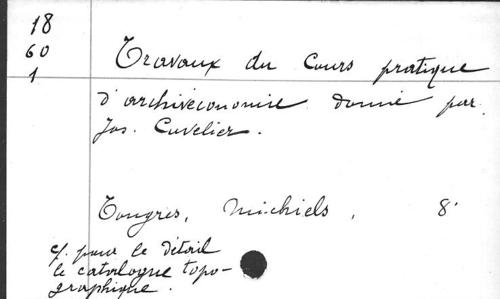 18
60
1
Travaux du Cours pratique
d'archiveconomie donné par
Jos. Cuvelier.
Tongres, Michiels, 8°
cf. pour le détail
le catalogue topo-
graphique.